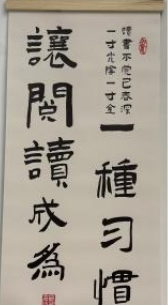 讓閱讀成為
一種习慣
讀書不觉已春深
一寸光陰一寸金